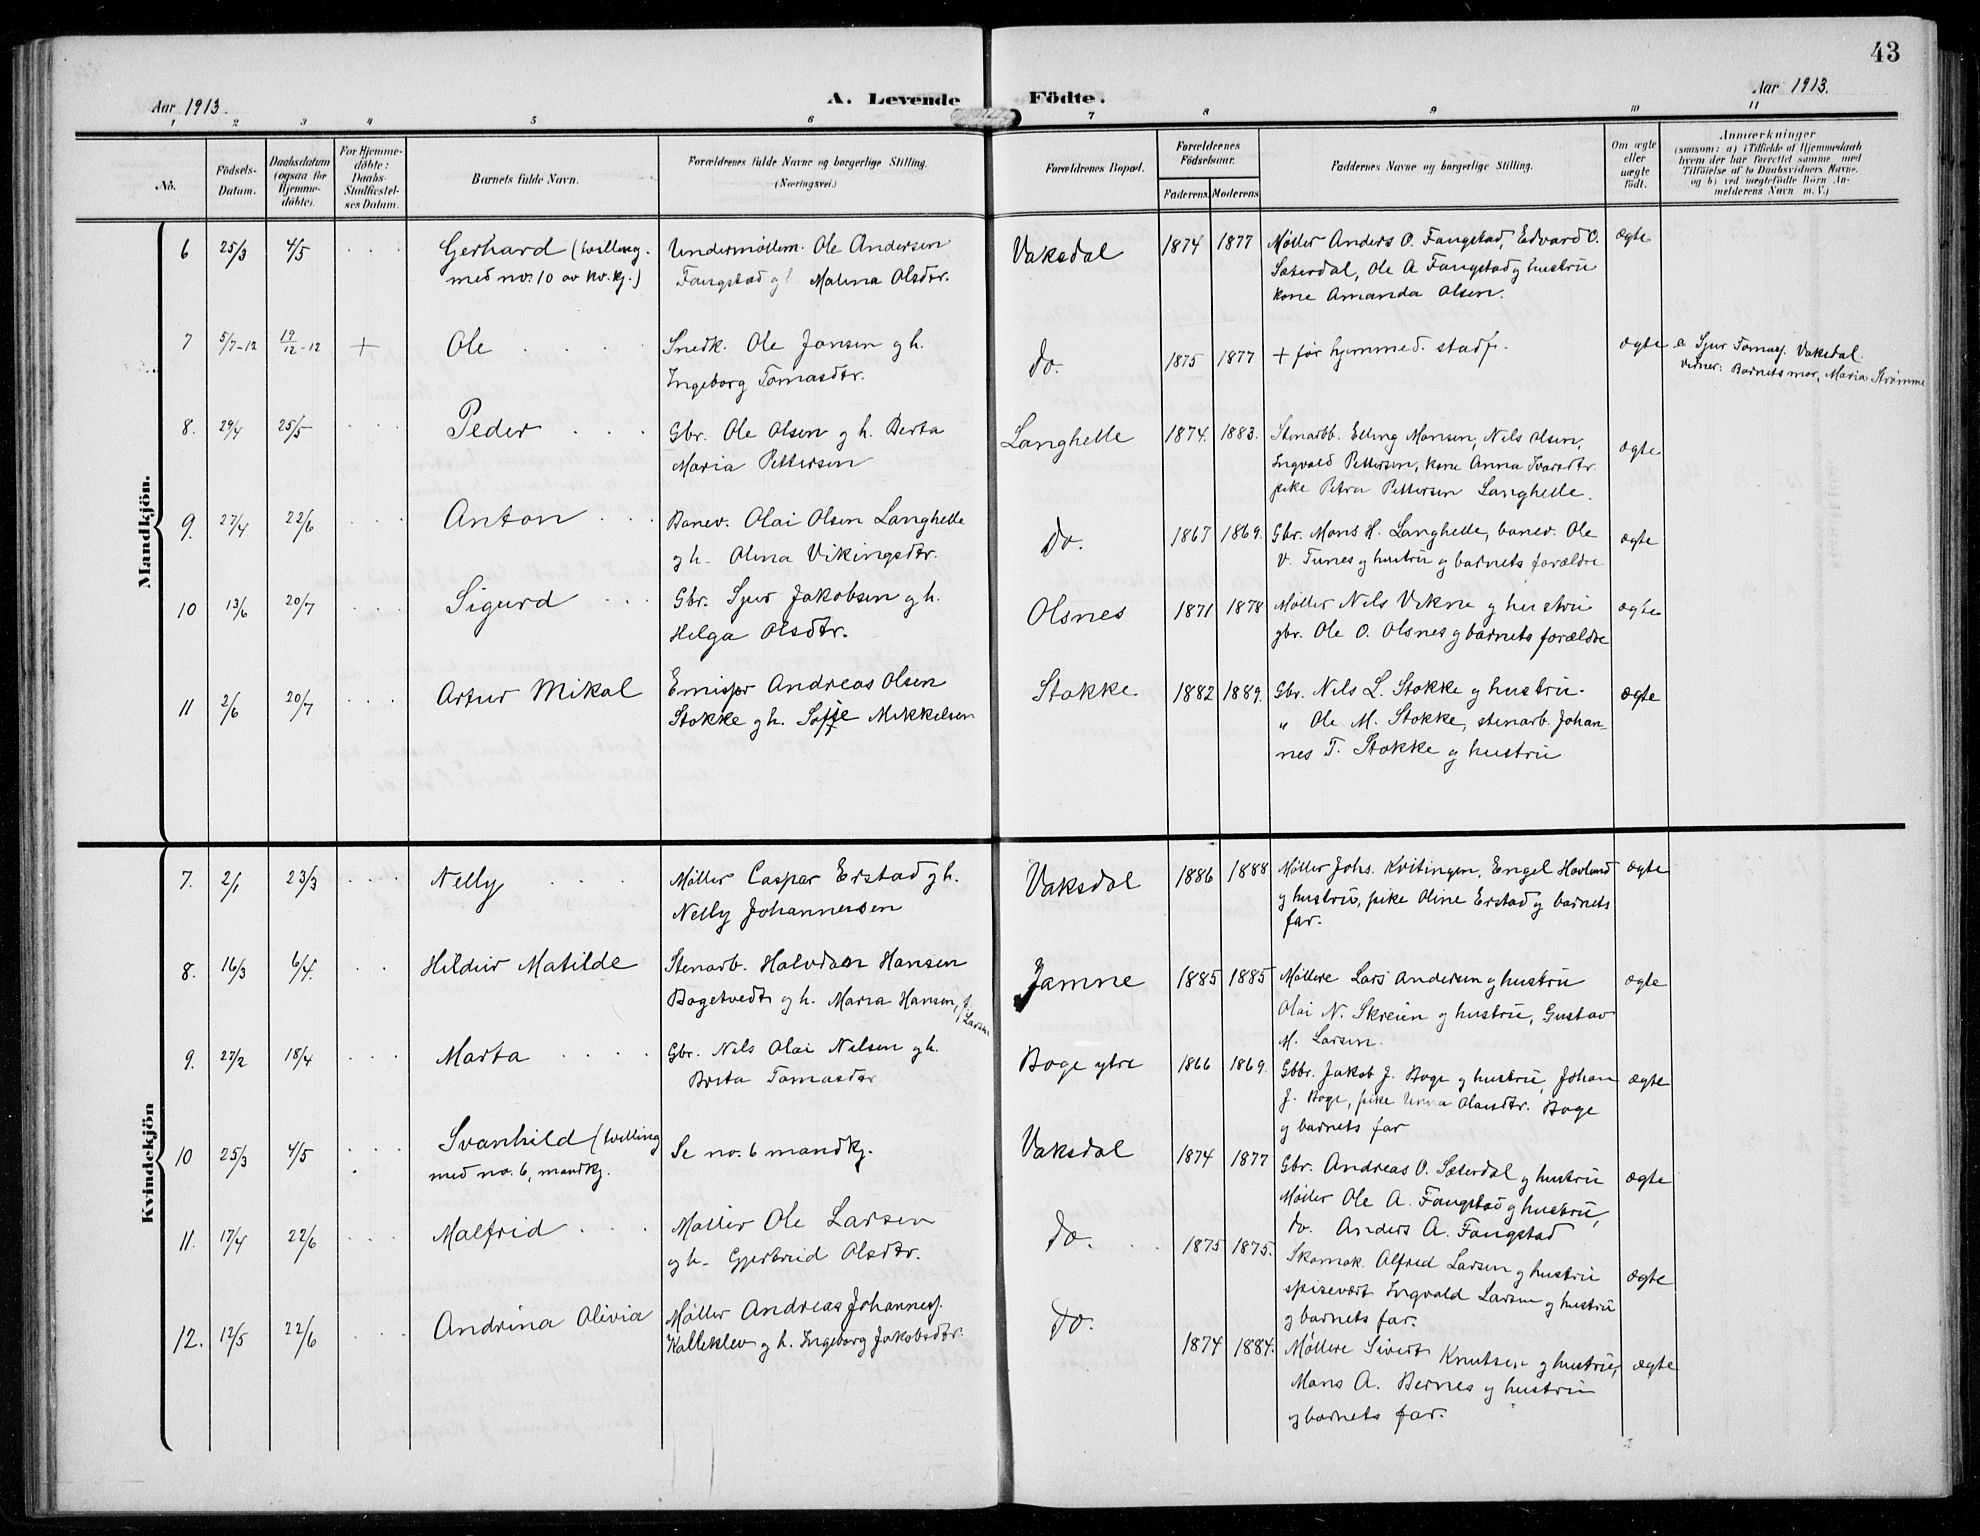 43
Aar 1913.
A. Levende Födte.
Aar 1913.
1 2 3 4 5 6 7 8 9 10 11
No.
Födsels-Datum.
Daabsdatum (ogsaa for Hjemme-döbte).
For Hjemme-döbte: Daabs-Stadfæstel-ses Datum.
Barnets fulde Navn.
Forældrenes fulde Navne og borgerlige Stilling. (Næringsvei.)
Forældrenes Bopæl.
Forældrenes Födselsaar.
Faderens. Moderens.
Faddernes Navne og borgerlige Stilling.
Om ægte eller uægte födt.
Anmærkninger
(saasom: a) i Tilfælde af Hjemmedaab
hvem der har forrettet samme, med
Tilföielse af to Daabsvidners Navne.
og b) ved uægtefödte Börn An-
melderens Navn m. V.)
Mandkjön.
6 25/3 4/5 Gerhard (tvilling Undermøllem. Ole Andersen Vaksdal 1874 1877 Møller Anders O. Fangstad, Edvard O. ægte
med no. 10 av kv.kj.) Fangstad g h Malina Olsdtr. Sæterdal, Ole A Fangstad g hustru
kone Amanda Olsen.
7 5/7-12 19/12-12 + Ole Snedk. Ole Jansen g h. do. 1875 1877 + før hjemmed. stadf. ægte a Sjur Tomasj. Vaksdal.
Ingeborg Tomasdtr. vidner: Barnets mor, Maria Strømme
8. 29/4 25/5 Peder Gbr. Ole Olsen g h. Berta Langhelle 1874. 1883. Stenarbb. Elling Monsen, Nils Olsen, ægte
Maria Pettersen Ingvald Pettersen, kone Anna Ivarsdtr.
pike Petra Pettersen Langhelle.
9. 27/4 22/6 Anton Banev. Olai Olsen Langhelle do. 1867 1869. Gbr. Mons H. Langhelle, banev. Ole ægte
g h. Olina Vikingsdtr. V. Tunes g hustru g barnets forældre
10 13/6 20/7 Sigurd Gbr. Sjur Jakobsen g h. Olsnes 1871 1878 Møller Nils Vikne g hustru ægte
Helga Olsdtr. gbr. Ole O. Olsnes g barnets forældre
11 2/6 20/7 Artur Mikal Emispr Andreas Olsen Stokke 1882 1889. Gbr. Nils L. Stokke g hustru. ægte
Stokke g h. Soffie Mikkelsen " Ole M. Stokke, stenarb. Johan-
nes T. Stokke g hustru
Kvindekjön
7. 2/1 23/3 Nelly Møller Caspar Erstad g h. Vaksdal 1886 1888 Møller Johs. Kvitingen, Engel Havland ægte
Nelly Johannesen g hustru, pike Oline Erstad g barnets
far.
8. 16/3 6/4. Hildur Matilde Stenarb. Halvdan Hansen Jamne 1885 1885 Møllere Lars Andersen g hustru ægte
Bogetvedt g h. Maria Hansen, f. Larsen Olai N. Skreien g hustru, Gustav
M. Larsen.
9. 27/2 18/4 Marta Gbr. Nils Olai Nilsen g h. Boge ytre 1866 1869. Gbbr. Jakob J. Boge g hustru, Johan ægte
Brita Tomasdtr J. Boge, pike Olaisdtr. Boge
g barnets far
10 25/3 4/5 Svanhild (tvilling Se no. 6 mandkj. Vaksdal 1874 1877 Gbr. Andreas O. Sæterdal g hustru ægte
med no. 6, mandkj. Møller Ole A. Fangstad g hustru,
do. Anders A. Fangstad
11. 17/4 22/6 Malfrid Møller Ole Larsen do. 1875 1875. Skomak. Alfred Larsen g hustru ægte
g h. Gjertrud Olsdtr. spisevært Ingvald Larsen g hustru
g barnets far.
12. 12/5 22/6 Andrina Olivia Møller Andreas Johannesj. do. 1874 1884. Møllere Sivert Knutsen g hustru, ægte
Kalleklev g h. Ingeborg Jakobsdtr. Mons A. Bernes g hustru
g barnets far.